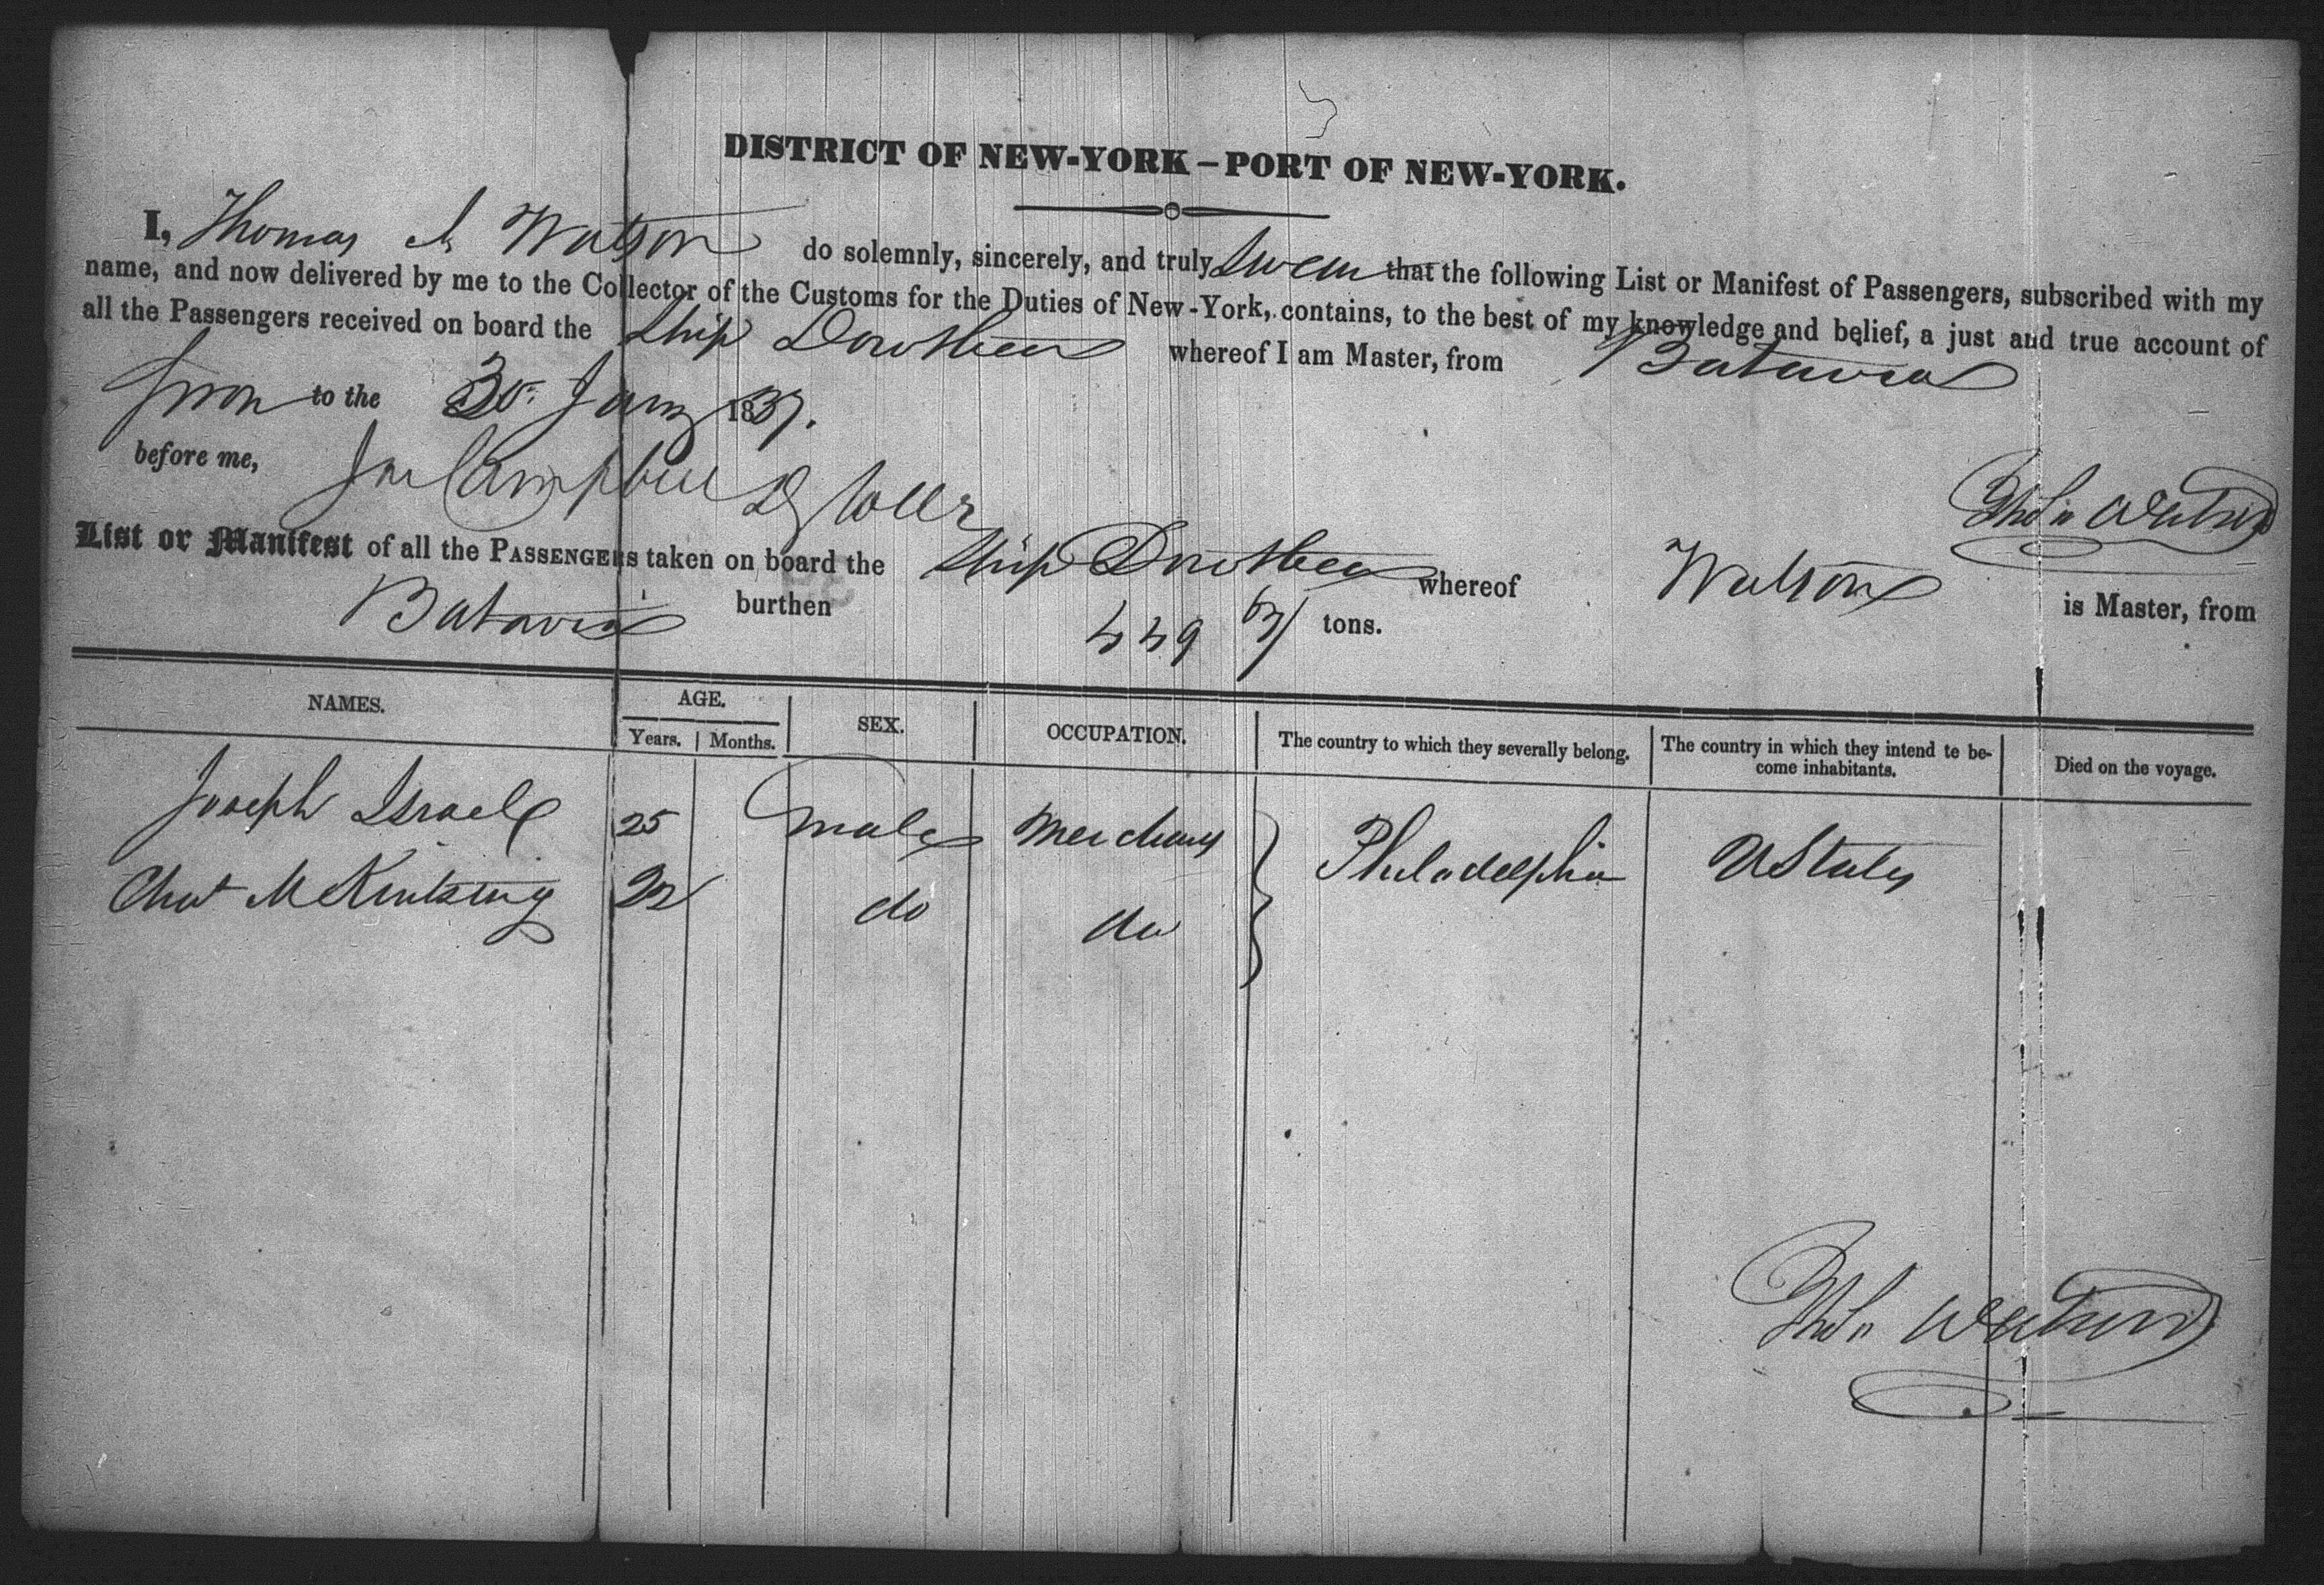 DISTRICT OF NEW-YORK – PORT OF NEW-YORK.
I, Thomas A Watson do solemnly, sincerely, and truly Swear that the following List or Manifest of Passengers, subscribed with my
name, and now delivered by me to the Collector of the Customs for the Duties of New-York, contains, to the best of my knowledge and belief, a just and true account of
all the Passengers received on board the Ship Dorothea whereof I am Master, from Batavia
Sworn to the 30 Jany 1837.
before me, Campbell Thos Watson
List or Manifest of all the PASSENGERS taken on board the Ship Dorothea whereof Watson is Master, from
Batavia burthen 449 tons.
NAMES. AGE. SEX. OCCUPATION. The country to which they severally belong. The country in which they intend te be-
come inhabitants. Died on the voyage.
Years. Months.
Joseph Israel 25 male Merchant Philadelphia U States
Chas M Keutzing 22 do do
Thos Watson